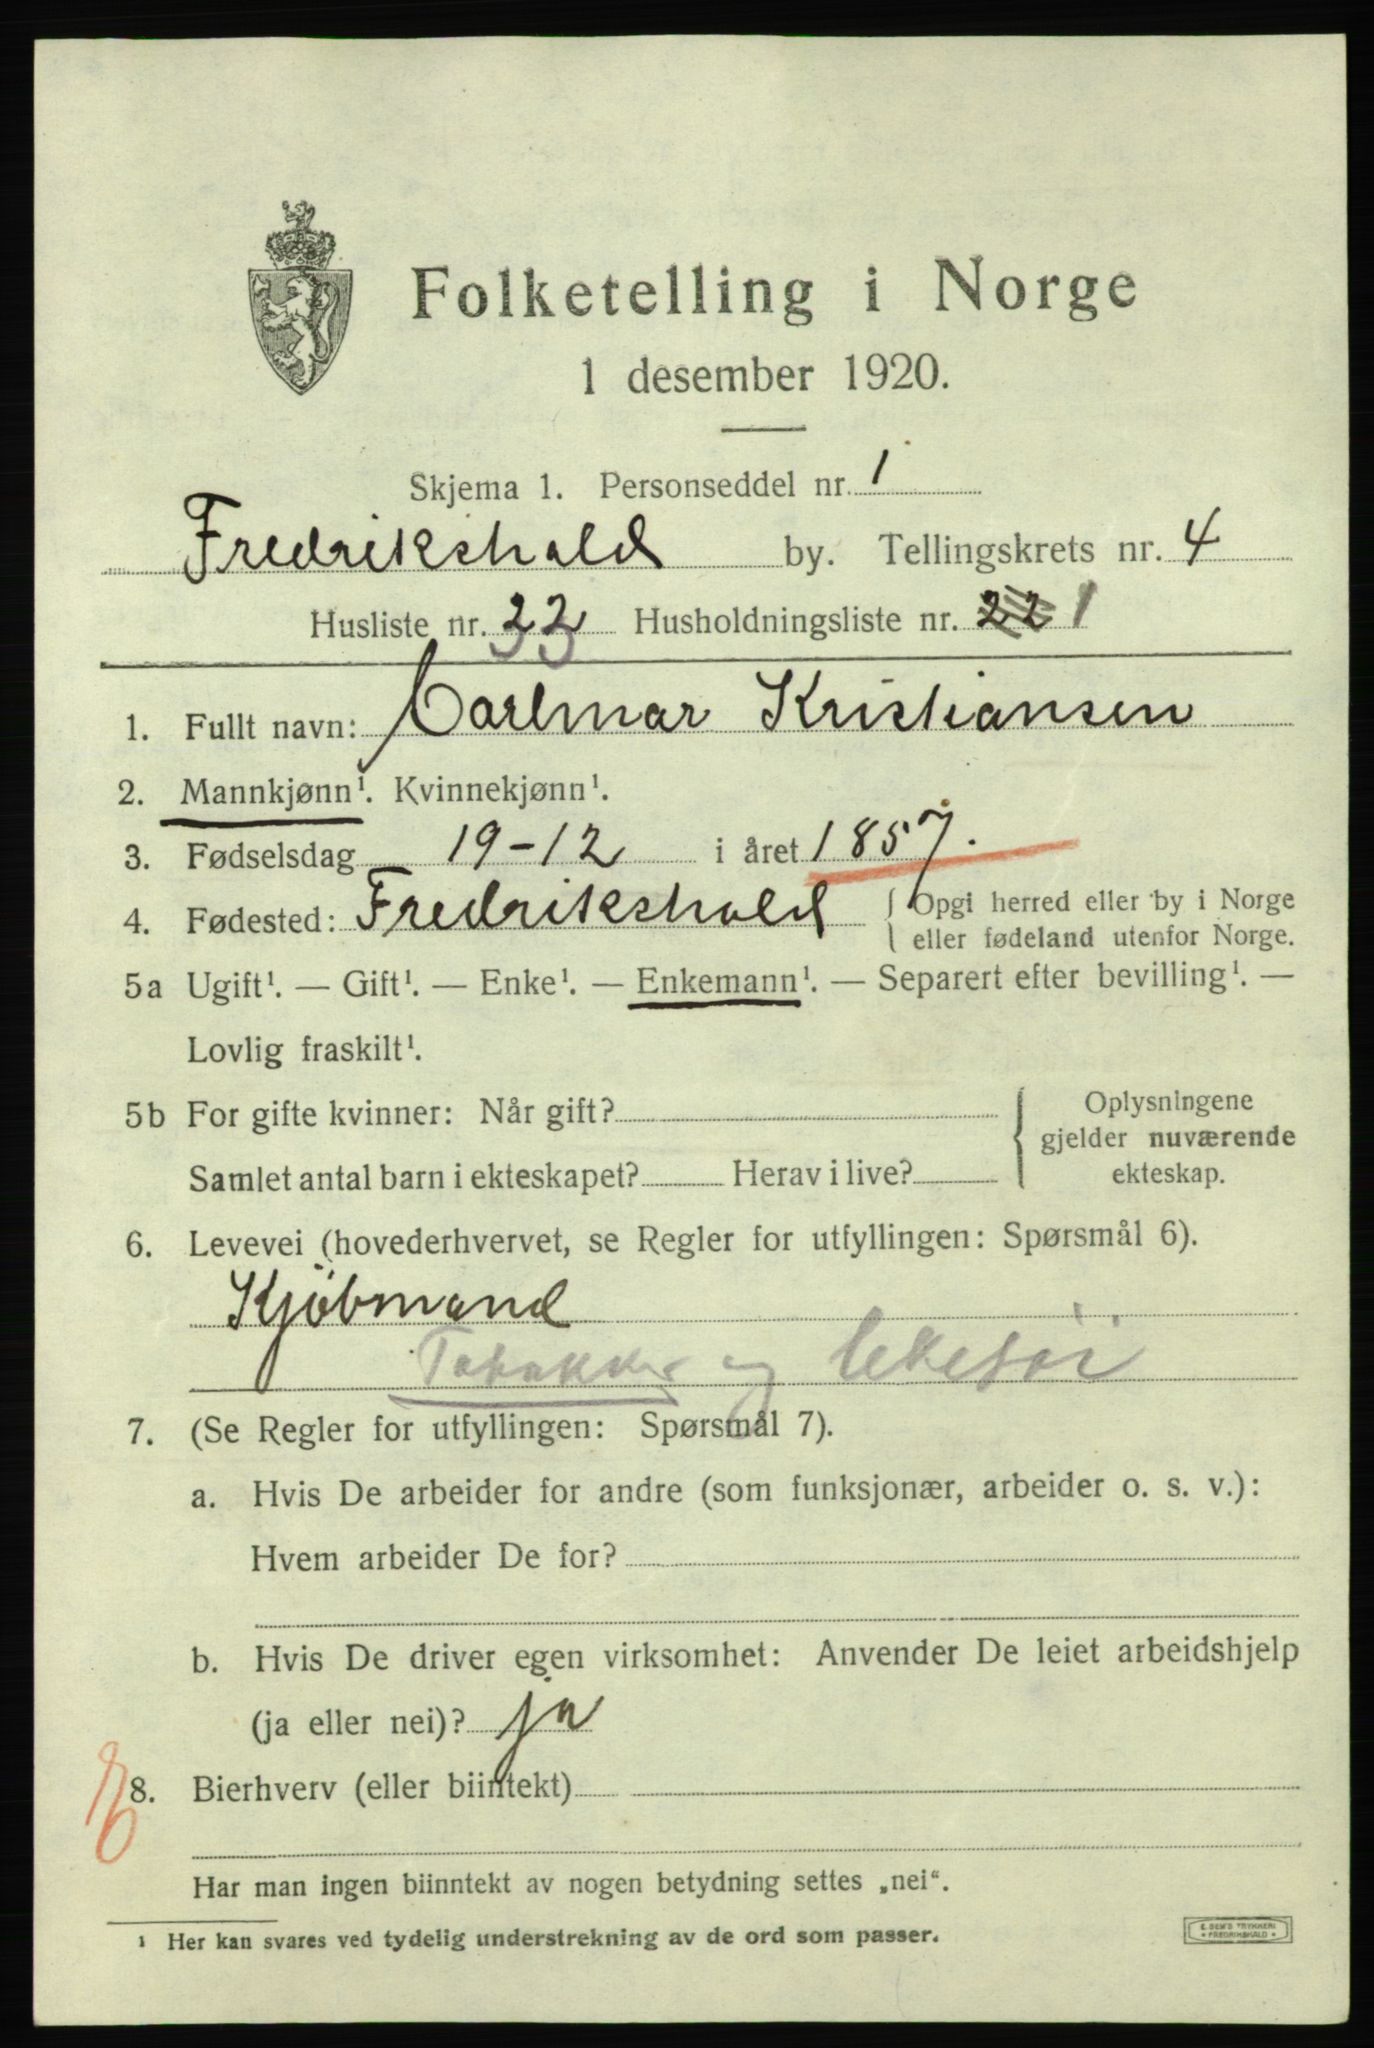 Folketelling i Norge
1 desember 1920.
Skjema 1. Personseddel nr. 1
Fredrikshald by. Tellingskrets nr. 4
Husliste nr. 33 Husholdningsliste nr. 22 1
1. Fullt navn: Carlmar Kristiansen
2. Mannkjønn¹. Kvinnekjønn¹.
3. Fødselsdag 19-12 i året 1857.
4. Fødested: Fredrikshald { Opgi herred eller by i Norge
eller fødeland utenfor Norge.
5a Ugift¹. — Gift¹. — Enke¹. — Enkemann¹. — Separert efter bevilling¹. —
Lovlig fraskilt¹.
5b For gifte kvinner: Når gift? { Oplysningene
gjelder nuværende
Samlet antal barn i ekteskapet? Herav i live? ekteskap.
6. Levevei (hovederhvervet, se Regler for utfyllingen: Spørsmål 6).
Kjöbmand
Tobakker og leketøi
7. (Se Regler for utfyllingen: Spørsmål 7).
a. Hvis De arbeider for andre (som funksjonær, arbeider o. s. v.):
Hvem arbeider De for?
b. Hvis De driver egen virksomhet: Anvender De leiet arbeidshjelp
(ja eller nei)? ja
8. Bierhverv (eller biinntekt)
Har man ingen biinntekt av nogen betydning settes „nei“.
¹ Her kan svares ved tydelig understrekning av de ord som passer.
E. SEM'S TRYKKERI
* FREDRIKSHALD *